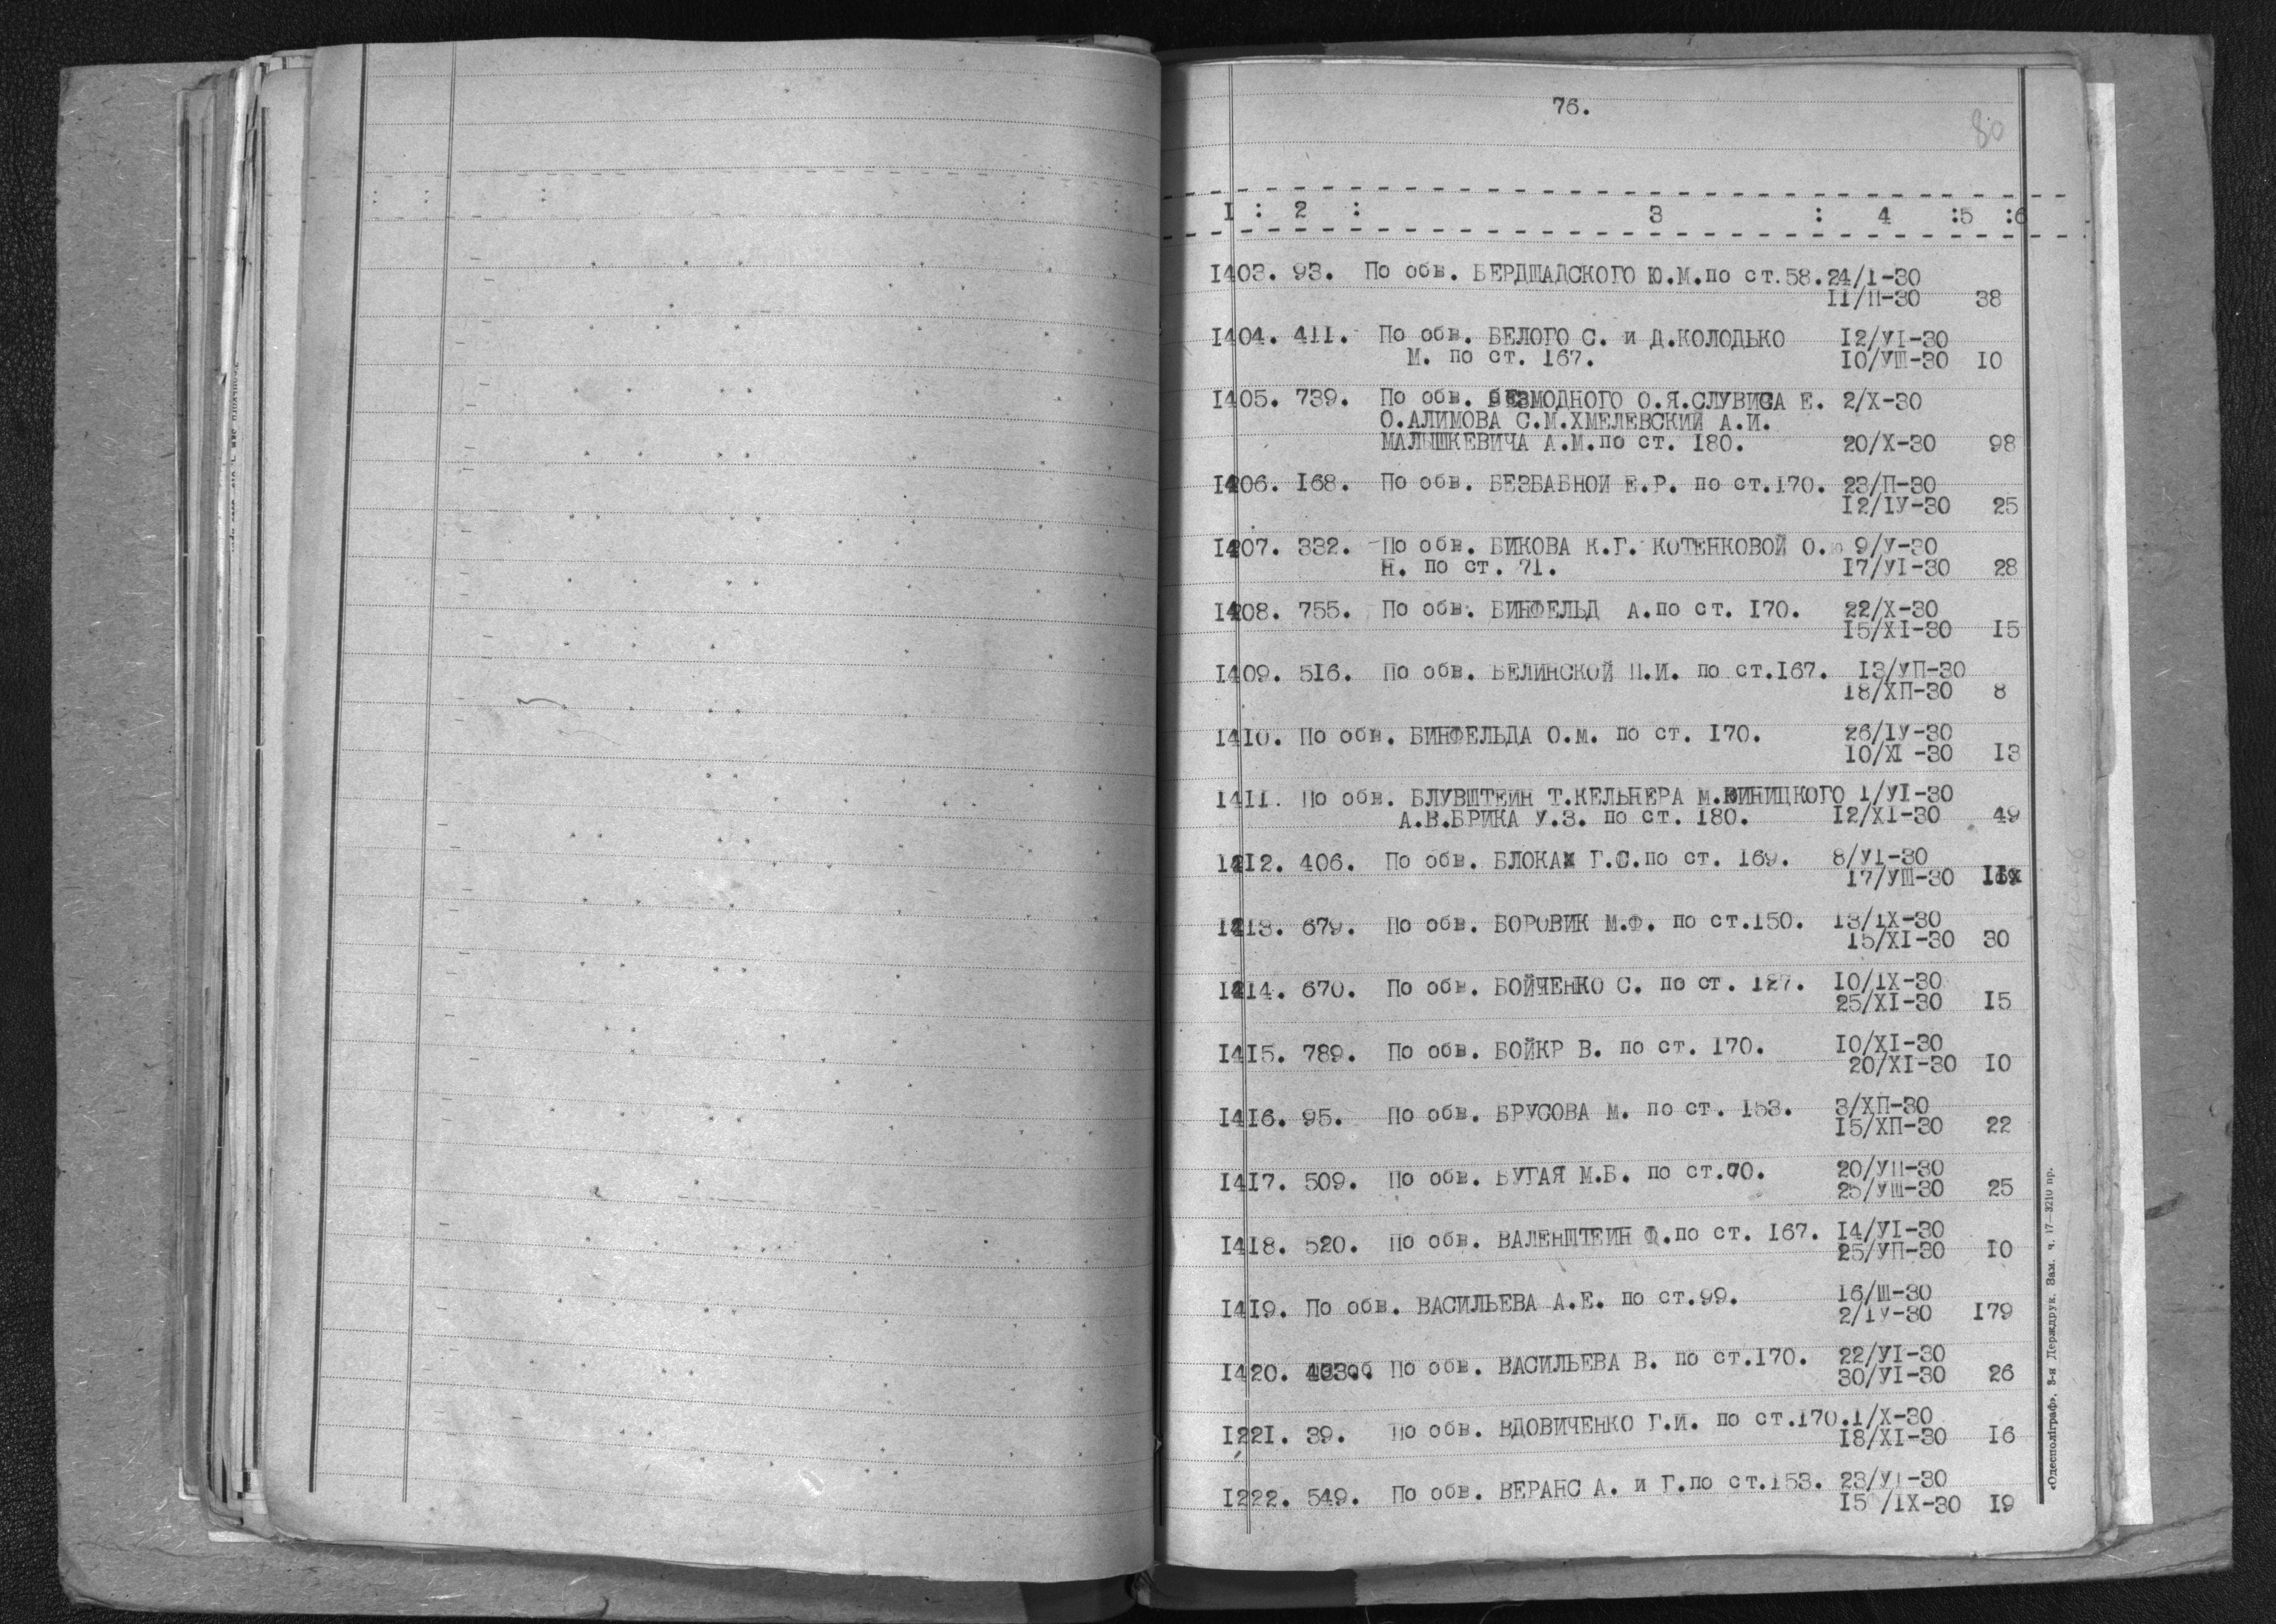 76.
80
I : 2 : 3 : 4 :5 :6
I403. 93. По обв. БЕРДШАДСКОГО Ю.М.по ст.58. 24/I-30
II/П-30 38
I404. 411. По обв. БЕЛОГО С. и Д.КОЛОДЬКО I2/УI-30
М. по ст. 167. IO/УШ-30 IO
I405. 739. По обв. БЕЗМОДНОГО О.Я.СЛУВИСА Е. 2/Х-30
О.АЛИМОВА С.М.ХМЕЛЕВСКИЙ А.И.
МАЛЫШКЕВИЧА А.М.по ст. I80. 20/Х-30 98
I406. I68. По обв. БЕЗБАБНОЙ Е.Р. по ст.I70. 23/П-30
I2/IУ-30 25
I407. 332. По обв. БИКОВА К.Г. КОТЕНКОВОЙ О. 9/У-30
Н. по ст. 71. I7/УI-30 28
I408. 755. По обв. БИНФЕЛЬД А.по ст. I70. 22/Х-30
I5/ХI-30 I5
I409. 5I6. По обв. БЕЛИНСКОЙ П.И. по ст.I67. I3/УП-30
I8/ХП-30 8
I4IO. По обв. БИНФЕЛЬДА О.М. по ст. I70. 26/IУ-30
IO/ХI -30 I3
I4II. По обв. БЛУВШТЕЙН Т.КЕЛЬНЕРА М.ВИНИЦКОГО I/УI-30
А.В.БРИКА У.З. по ст. I80. I2/ХI-30 49
I4I2. 406. По обв. БЛОКА Г.С.по ст. I69. 8/УI-30
I7/УШ-30
I4I3. 679. По обв. БОРОВИК М.Ф. по ст.I50. I3/IХ-30
I5/ХI-30 30
I4I4. 670. По обв. БОЙЧЕНКО С. по ст. I27. IO/IХ-30
25/ХI-30 I5
I4I5. 789. По обв. БОЙКР В. по ст. I70. IO/ХI-30
20/ХI-30 IO
I4I6. 95. По обв. БРУСОВА М. по ст. I53. 3/ХП-30
I5/ХП-30 22
I4I7. 509. По обв. БУГАЯ М.Б. по ст.70. 20/УП-30
25/УШ-30 25
I4I8. 520. По обв. ВАЛЕНШТЕЙН Ф.по ст. I67. I4/УI-30
25/УП-30 IO
I4I9. По обв. ВАСИЛЬЕВА А.Е. по ст.99. I6/Ш-30
2/IУ-30 I79
I420. По обв. ВАСИЛЬЕВА В. по ст.I70. 22/УI-30
30/УI-30 26
I22I. 39. По обв. ВДОВИЧЕНКО Г.И. по ст.I70. I/Х-30
I8/ХI-30 I6
I222. 549. По обв. ВЕРАНС А. и Г.по ст.I53. 23/УI-30
I5 /IХ-30 I9
«Одесполіграф». 3-я Держдрук. Зам. ч. 17—3210 пр.